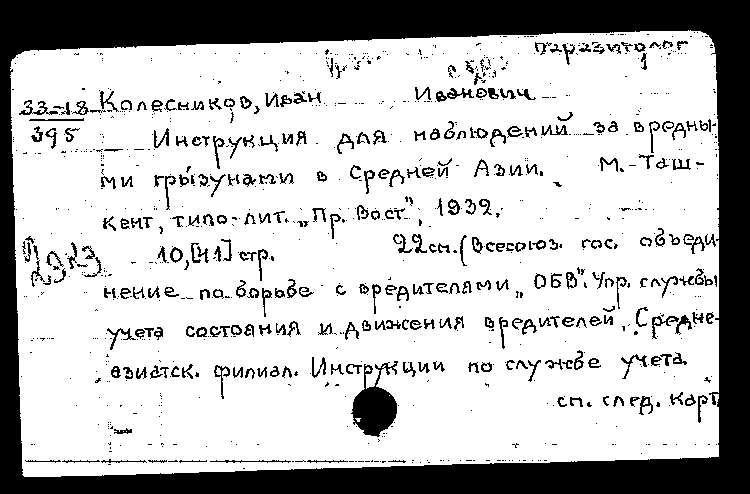 паразитолог
33-18 Колесников, Иван Иванович
395
Инструкция для наблюдений за вредны-
ми грызунами в Средней Азии. М.-Таш-
кент, типо-лит. „Пр. Вост.", 1932.
10,[11] стр. 22 см. (Всесоюз. гос. объеди-
нение по борьбе с вредителями „ОБВ". Упр. службы
учета состояния и движения вредителей, Средне-
азиатск. филиал. Инструкции по службе учета.
см. след. карт